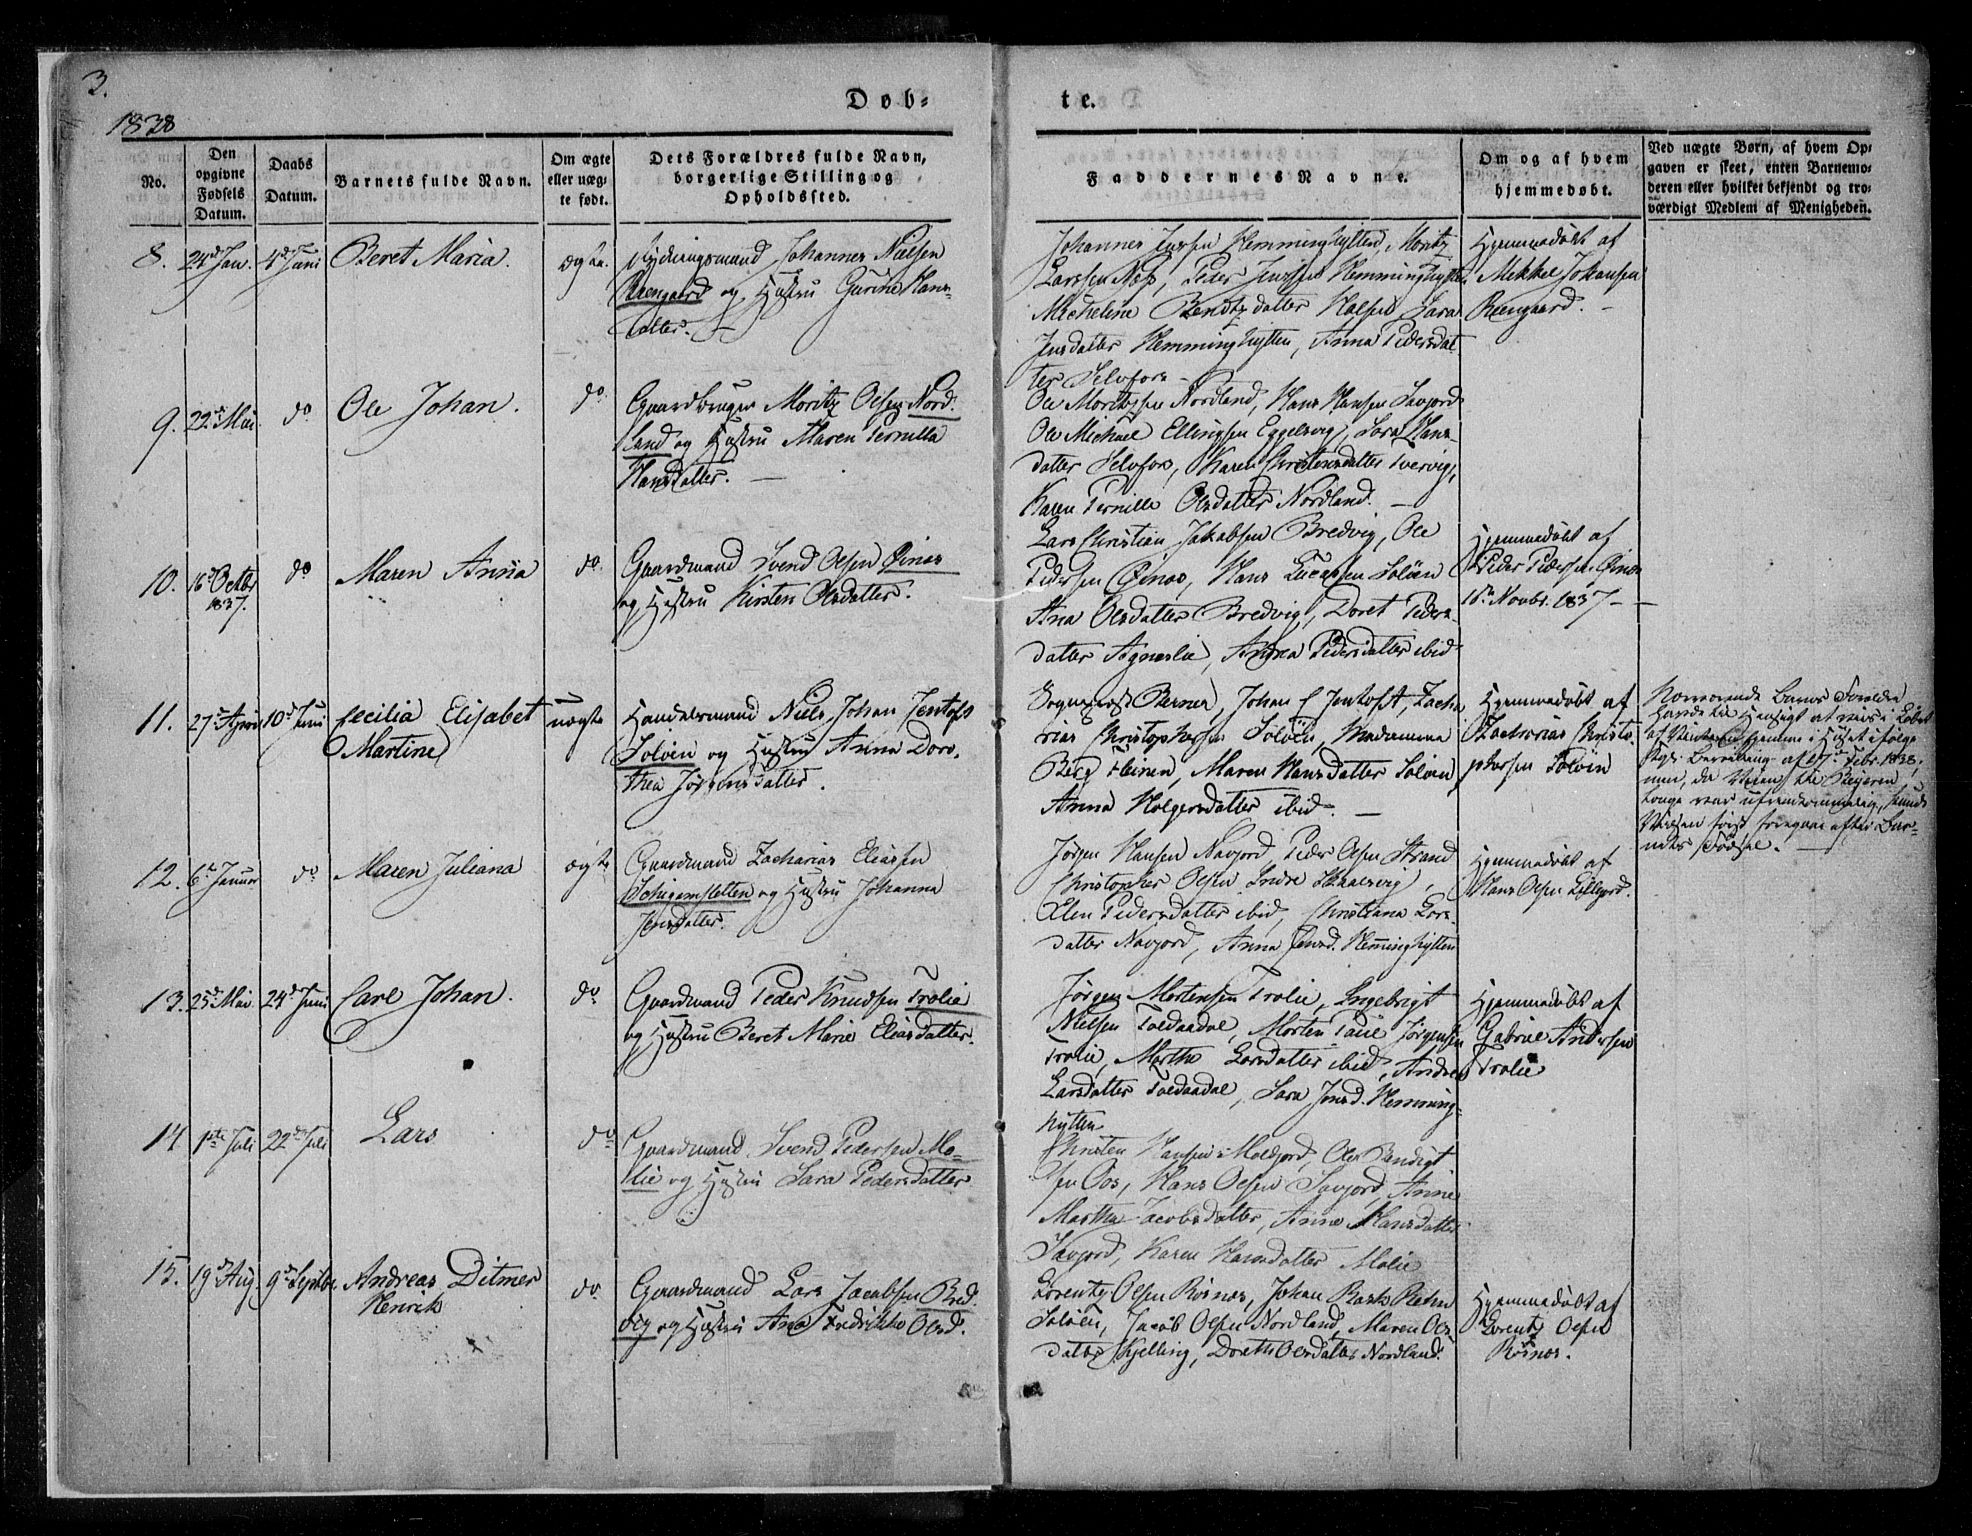 3.
Døb-
te.
1838
No.
Den opgivne Fødsels Datum.
Daabs Datum.
Barnets fulde Navn.
Om ægte eller uæg- te født.
Dets Forældres fulde Navn, borgerlige Stilling og Opholdssted.
Faddernes Navne.
Om og af hvem hjemmedøbt.
Ved uægte Børn, af hvem Op- gaven er skeet, enten Barnemo- deren eller hvilket bekjendt og tro- værdigt Medlem af Menigheden.
8. 24d Jan. 4d Juni Beret Maria. ægte.
Rydningsmand Johannes Nielsen
Reengaard og Hustru Gurine Hans-
datter. —
Johannes Jensen Hemminghytten, Moritz
Larssen Næs, Peder Jensen Hemminghytten
Micheline Bendtzdatter, Sara
Jensdatter Hemminghytten, Anna Pedersdat-
ter Selvfors —
Hjemmedøbt af
Mikkel Johansen
Reengaard. —
9. 22d Mai do Ole Johan. do
Gaardbruger Moritz Olsen Nord-
land og Hustru Maren Pernilla
Hansdatter. —
Ole Moritzsen Nordland, Hans Hansen Savjord
Ole Michael Ellingsen Eggesvig, Sara Hans-
datter Selvfors, Karen Christensdatter Tvervig,
Karen Pernille Olsdatter Nordland. —
10. 16d Octbr 1837. do Maren Anna do
Gaardmand Svend Olsen Øines
og Hustru Kirsten Olsdatter.
Lars Christian Jakobsen Bredvig, Ole
Pedersen Øines, Hans Lucassen Soløen
Ana Olsdatter Bredvig, Doret Peders-
datter Agneslie, Andrea Pedersdatter ibid
Hjemmedøbt af
Peder Pedersen Øines
Novbr. 1837 —
11. 27d April 10d Juni Cecilia Elisabet
Martine
uægte
Handelsmand Niels Johan Jentoft
Soløen og Hustru Anna Doro-
thea Jørgensdatter.
Sognepræst Berner, Johan C Jentoft, Zacha-
rias Christophersen Soløen, Madamme
Berg Fleinen, Maren Hansdatter Soløen
Anna Holgersdatter ibid. —
Hjemmedøbt af
Zacharias Christo-
phersen Soløen
Nærværende Barns Forældre
havde til Hensigt at
af hjemme i Huset ifølge
Kgl. Bevilling af 17d Febr. 1838,
men, da Veien til Beieren
længe var ufremkommelig, kunde
Vielsen først foregaae efter Bar-
nets Fødsel. —
12. 6te Januar do Maren Juliana ægte
Gaardmand Zacharias Eliassen
og Hustru Johanna
Jensdatter.
Jørgen Hansen Navjord, Peder Olsen Strand
Christopher Olsen Indre
Elen Pedersdatter ibid, Christiana Lars-
datter Navjord, Anna Jensd. Hemminghytten
Hjemmedøbt af
Hans Olsen Lillejord.
13. 25d Mai 24d Juni Carl Johan. do
Gaardmand Peder Knudsen Trolie
og Hustru Beret Marie Eliasdatter.
Jørgen Mortensen Trolie, Ingebrigt
Nielsen Toldaadal, Morten Paul Jørgensen
Trolie, Martha Larsdatter ibid, Andrea
Larsdatter Toldaadal, Sara Jensd. Hemming-
hytten
Hjemmedøbt af
Gabriel Andersen
Trolie
14. 1ste Juli 22d Juli Lars do
Gaardmand Svend Pedersen Mo-
lie og Hustru Sara Pedersdatter
Christen Hansen Moldjord, Ole Bendigt-
sen Oos, Hans Olsen Savjord, Anne
Martha Jacobsdatter, Anne Hansdatter
Savjord, Karen Hansdatter Molie
15. 19d Aug. 9d Septbr. Andreas Ditmer
Henrik
do
Gaardmand Lars Jacobsen Bred-
vig og Hustru Ana Fredrikke Olsd.
Lorentz Olsen Rosnæs, Johan
Soløen, Jacob Olsen Nordland, Maren Ols-
datter Kjelling, Doreth Olsdatter Nordland.
Hjemmedøbt af
Lorentz Olsen
Rosnæs.